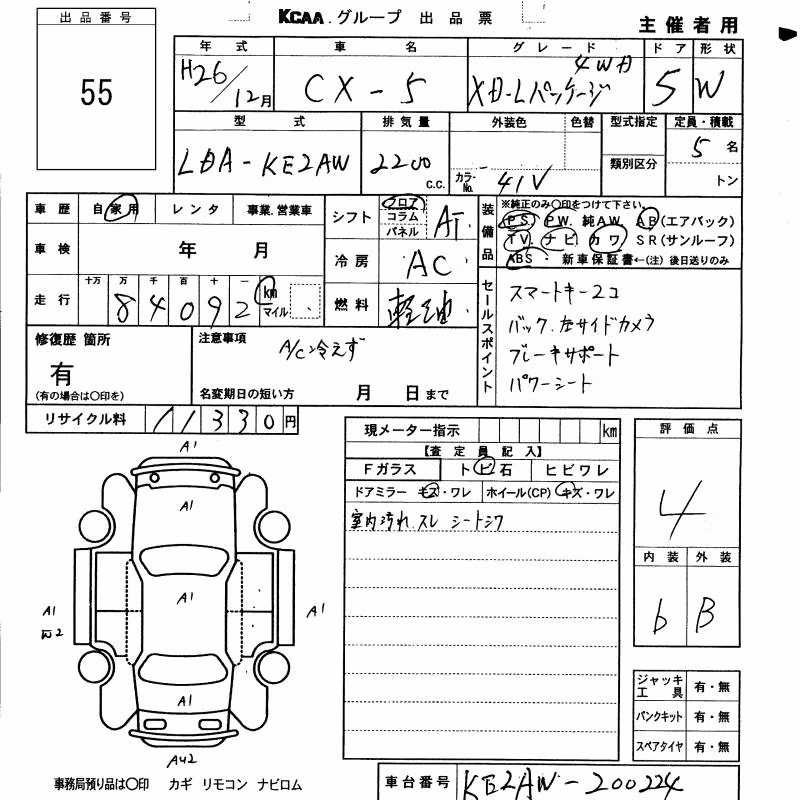 出品番号
KCAA.グループ 出品票
主催者用
55
年式 車名 グレード ドア 形状
H26/12月 CX-5 XD-Lパッケージ 4WD 5 W
型式 排気量 外装色 色替 型式指定 定員・積載
LDA-KE2AW 2200 c.c. カラーNo. 41V 類別区分 5名
トン
車歴 自家用 レンタ 事業.営業車
シフト フロア コラム パネル AT
装備品 ※純正のみ○印をつけて下さい。
PS PW. 純AW. AB(エアバッグ)
TV. ナビ カワ SR(サンルーフ)
ABS・新車保証書←(注)後日送りのみ
車検 年 月
冷房 AC
走行 十万 万 千 百 十 一 km マイル
84092
燃料 軽油
セールスポイント
スマートキー2コ
バック.左サイドカメラ
ブレーキサポート
パワーシート
修復歴 箇所
有
(有の場合は○印を)
注意事項
A/C冷えず
名変期日の短い方 月 日まで
リサイクル料 11330円
現メーター指示 km
【査定員記入】
Fガラス トビ石 ヒビワレ
ドアミラー キズ・ワレ ホイール(CP) キズ・ワレ
室内汚れ.スレ シートシワ
評価点
4
内装 外装
6 B
A1
A1
A1
A1
W2
A1
A1
AU2
ジャッキ工具 有・無
パンクキット 有・無
スペアタイヤ 有・無
事務局預り品は○印 カギ リモコン ナビロム
車台番号 KE2AW-200224